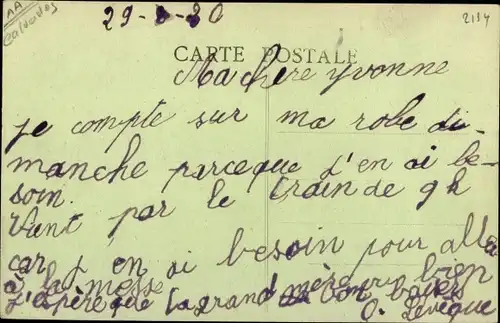 AA
Calvados
29-8-20
2194
CARTE POSTALE
Ma chère Yvonne
je compte sur ma robe di-
manche parceque j'en ai be-
soin.
par le train de 9h
car j'en ai besoin pour alle
à la messe
j'espère que la grand mère va bien
bon baiser
O. Levêque